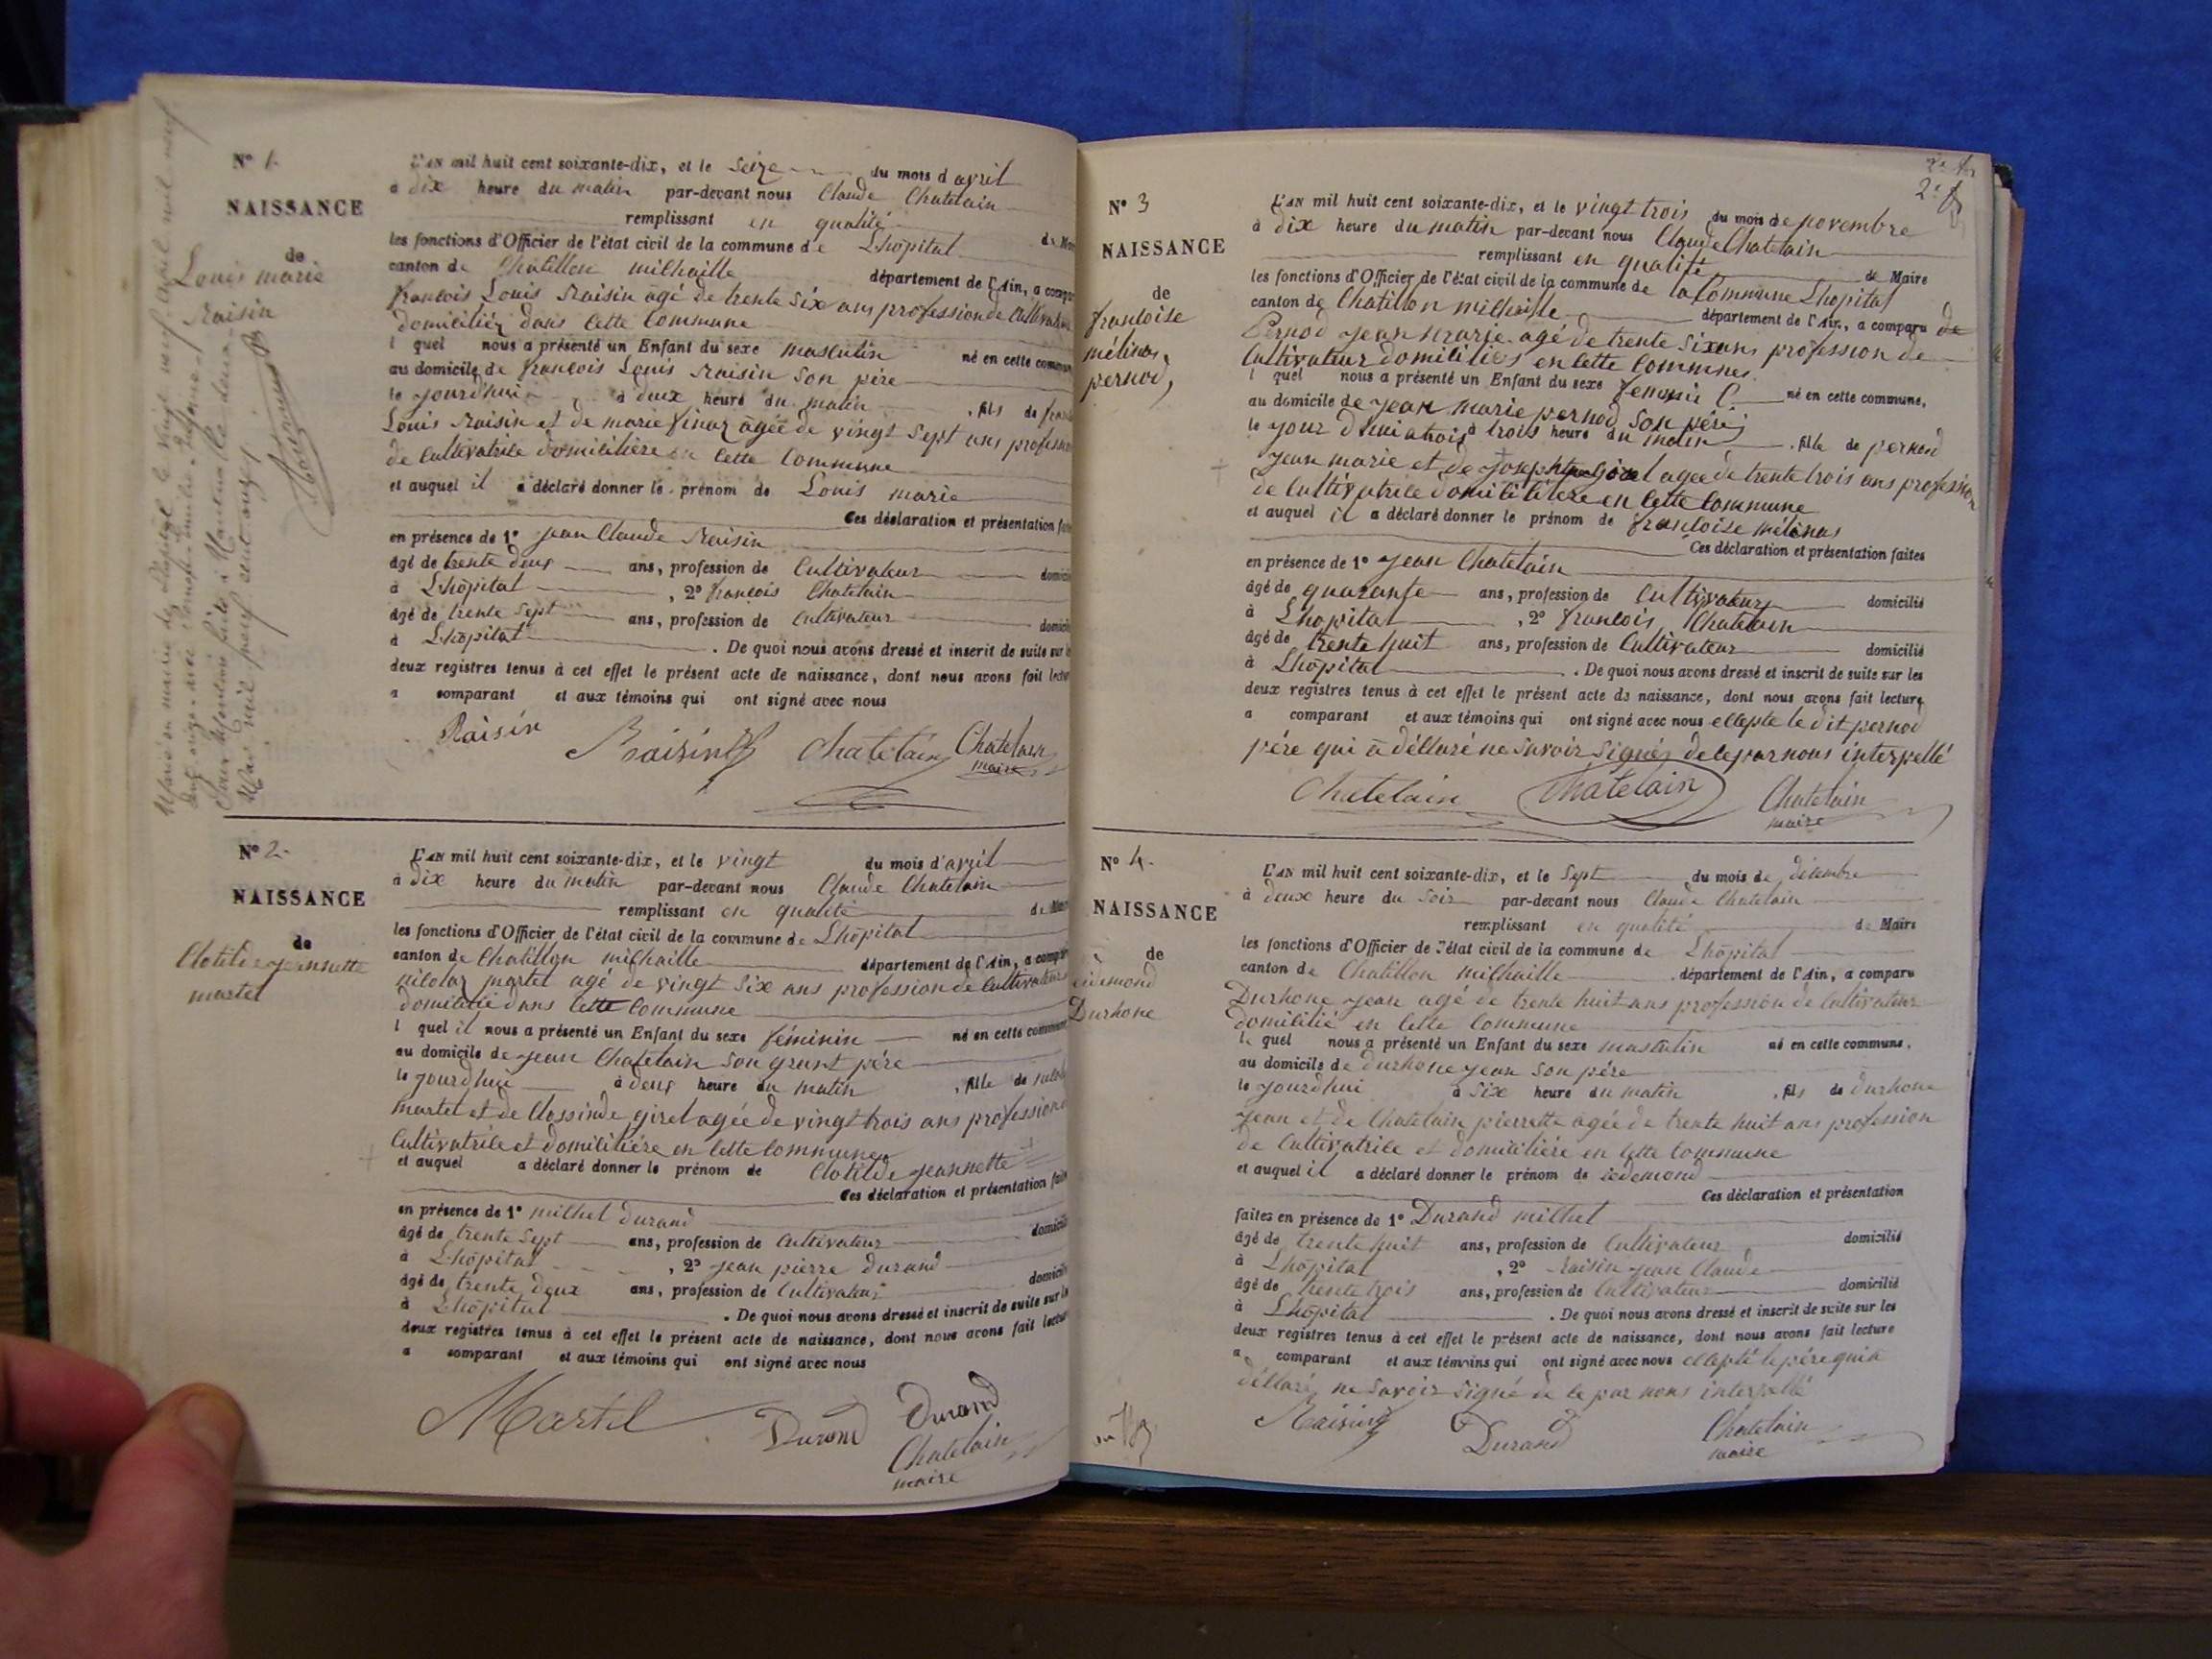 N° 1.
NAISSANCE
de
Louis marie
Raisin
L'AN mil huit cent soixante-dix, et le Seize du mois d avril
à dix heure du matin par-devant nous Claude Chatelain
remplissant en qualité de
les fonctions d'Officier de l'état civil de la commune de Lhôpital
canton de Chatillon milhaille département de l'Ain, a compa
françois Louis Raisin agé de trente six ans profession de Cultivateur
domiciliéz dans Cette Commune
l quel nous a présenté un Enfant du sexe masculin né en cette commune
au domicile de françois Louis Raisin Son père
le jourd'hui à deux heure du matin , fils de
Louis Raisin et de marie finaz agée de vingt Sept ans profession
de Cultivatrice domicilière en Cette Commune
et auquel il a déclaré donner le prénom de Louis marie
Ces déclaration et présentation
en présence de 1° jean Claude Raisin
âgé de trente deux ans, profession de Cultivateur
à Lhôpital , 2° françois Chatelain
âgé de trente Sept ans, profession de Cultivateur
à Lhôpital . De quoi nous avons dressé et inscrit de suite sur
deux registres tenus à cet effet le présent acte de naissance, dont nous avons fait lecture
a comparant et aux témoins qui ont signé avec nous
Raisin Raisin Chatelain Chatelain
maire
N° 2.
NAISSANCE
de
Clotilde jeannette
martel
L'AN mil huit cent soixante-dix, et le vingt du mois d'avril
à dix heure du matin par-devant nous Claude Chatelain
remplissant en qualité de
les fonctions d'Officier de l'état civil de la commune de Lhôpital
canton de Chatillon milhaille département de l'Ain, a comparu
martel agé de vingt Six ans profession de Cultivateur
domicilié dans Cette Commune
l quel il nous a présenté un Enfant du sexe féminin né en cette commune
au domicile de jean Chatelain Son grant père
le jourdhui à deux heure du matin , fille de
martel et de Clossinde girel agée de vingt trois ans profession
Cultivatrice et domicilière en Cette Commune
et auquel a déclaré donner le prénom de Clotilde jeannette
Ces déclaration et présentation
en présence de 1° milhel durand
âgé de trente Sept ans, profession de Cultivateur
à Lhôpital , 2° jean pierre durand
âgé de trente deux ans, profession de Cultivateur
à Lhôpital . De quoi nous avons dressé et inscrit de suite sur
deux registres tenus à cet effet le présent acte de naissance, dont nous avons fait lecture
a comparant et aux témoins qui ont signé avec nous
Martel Durand Durand
Chatelain
maire
N° 3
NAISSANCE
de
françoise
mélinas
pernod
L'AN mil huit cent soixante-dix, et le vingt trois du mois de novembre
à dix heure du matin par-devant nous Claude Chatelain
remplissant en qualité de Maire
les fonctions d'Officier de l'état civil de la commune de la Commune Lhopital
canton de Chatillon milhaille département de l'Ain, a comparu
Pernod jean marie agé de trente Six ans profession de
Cultivateur domiciliés en Cette Commune
l quel nous a présenté un Enfant du sexe né en cette commune,
au domicile de jean marie pernod Son père
le jour d'hui à trois heure du matin , fille de pernod
jean marie et de josephte girel agée de trente trois ans profession
de Cultivatrice domicilière en Cette Commune
et auquel il a déclaré donner le prénom de françoise mélinas
Ces déclaration et présentation faites
en présence de 1° jean Chatelain
âgé de quarante ans, profession de Cultivateur domicilié
à Lhopital , 2° françois Chatelain
âgé de trente huit ans, profession de Cultivateur domicilié
à Lhôpital . De quoi nous avons dressé et inscrit de suite sur les
deux registres tenus à cet effet le présent acte de naissance, dont nous avons fait lecture
a comparant et aux témoins qui ont signé avec nous ecepte le dit pernod
père qui a déllaré ne savoir signés de le par nous interpellé
Chatelain Chatelain Chatelain
maire
N° 4.
NAISSANCE
de
Durhone
L'AN mil huit cent soixante-dix, et le Sept du mois de décembre
à deux heure du Soir par-devant nous Claude Chatelain
remplissant en qualité de Maire
les fonctions d'Officier de l'état civil de la commune de Lhôpital
canton de Chatillon milhaille département de l'Ain, a comparu
Durhone jean agé de trente huit ans profession de Cultivateur
domicilié en Cette Commune
l quel nous a présenté un Enfant du sexe masculin né en cette commune,
au domicile de durhone jean Son père
le jourdhui à Six heure du matin , fils de durhone
jean et de Chatelain pierrette agée de trente huit ans profession
de Cultivatrice et domicilière en Cette Commune
et auquel il a déclaré donner le prénom de
Ces déclaration et présentation
faites en présence de 1° Durand milhel
âgé de trente huit ans, profession de Cultivateur domicilié
à Lhôpital , 2° Raisin jean Claude
âgé de trente trois ans, profession de Cultivateur domicilié
à Lhôpital . De quoi nous avons dressé et inscrit de suite sur les
deux registres tenus à cet effet le présent acte de naissance, dont nous avons fait lecture
a comparant et aux témoins qui ont signé avec nous ecepté le père qui a
déllaré ne savoir signé de le par nous interpellé
Raisin Durand Chatelain
maire